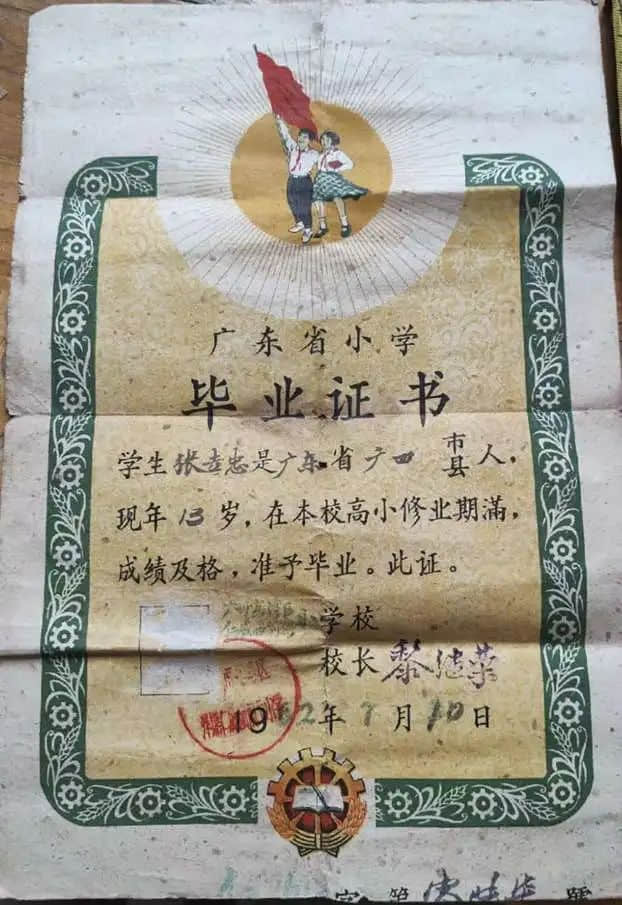 广东省小学
毕业证书
学生张 忠是广东省广 市县人,
现年13岁,在本校高小修业期满,
成绩及格,准予毕业。此证。
学校
校长黎 荣
1962年7月10日
字第 号